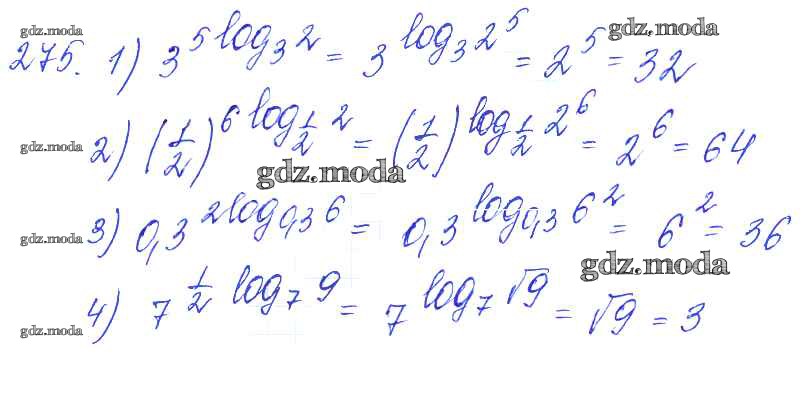 gdz.moda gdz.moda
275. 1) 3^{5 log_3 2} = 3^{log_3 2^5} = 2^5 = 32
gdz.moda 2) (1/2)^{6 log_{1/2} 2} = (1/2)^{log_{1/2} 2^6} = 2^6 = 64
gdz.moda
gdz.moda 3) 0,3^{2 log_{0,3} 6} = 0,3^{log_{0,3} 6^2} = 6^2 = 36
gdz.moda
gdz.moda 4) 7^{1/2 log_7 9} = 7^{log_7 √9} = √9 = 3